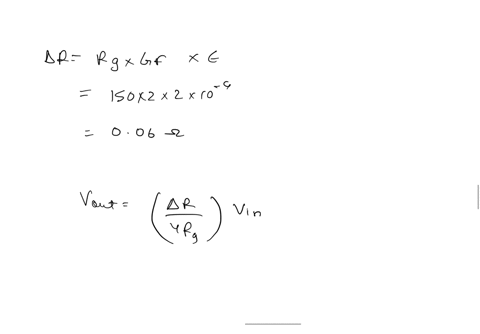 ΔR = Rg × GF × ε
= 150 × 2 × 2 × 10⁻⁴
= 0.06 Ω
Vout = (ΔR / 4Rg) Vin